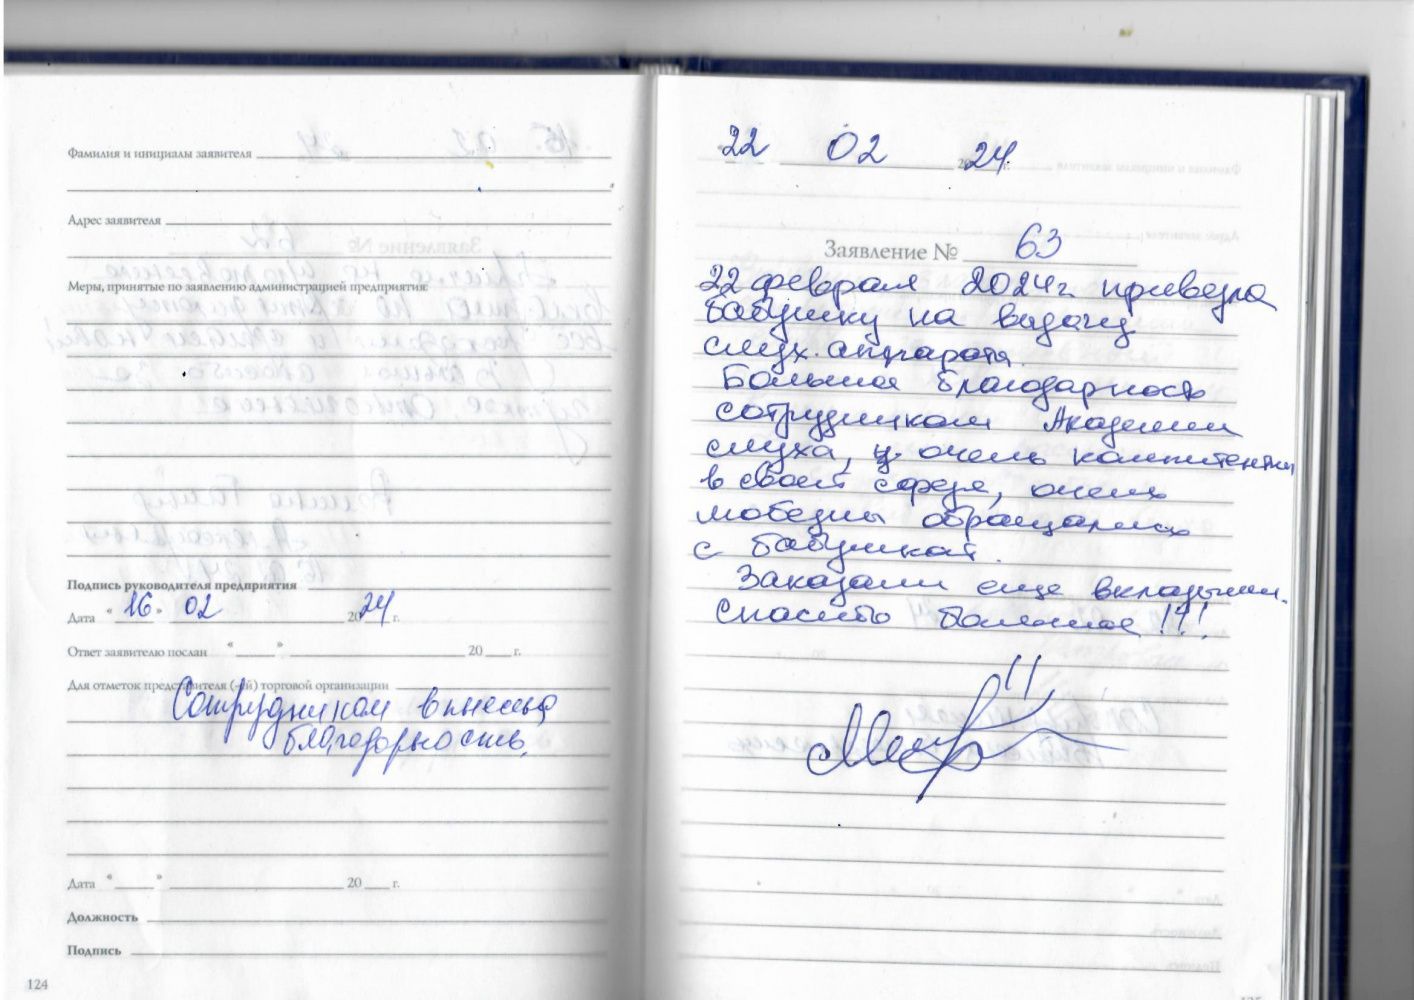 Фамилия и инициалы заявителя
Адрес заявителя
Меры, принятые по заявлению администрацией предприятия:
Подпись руководителя предприятия
Дата "16" 02 2024 г.
Ответ заявителю послан " " 20 г.
Для отметок представителя (-ей) торговой организации
Сотрудникам вынесена
благодарность.
Дата " " 20 г.
Должность
Подпись
124
22 02 2024 г.
Заявление № 63
22 февраля 2024 г. привезла
бабушку на выдачу
слух. аппарата.
Большая благодарность
сотрудникам Академии
слуха, очень компитентны
в своей сфере, очень
любезны обращались
с бабушкой.
Заказали еще вкладыши.
Спасибо большое!!!